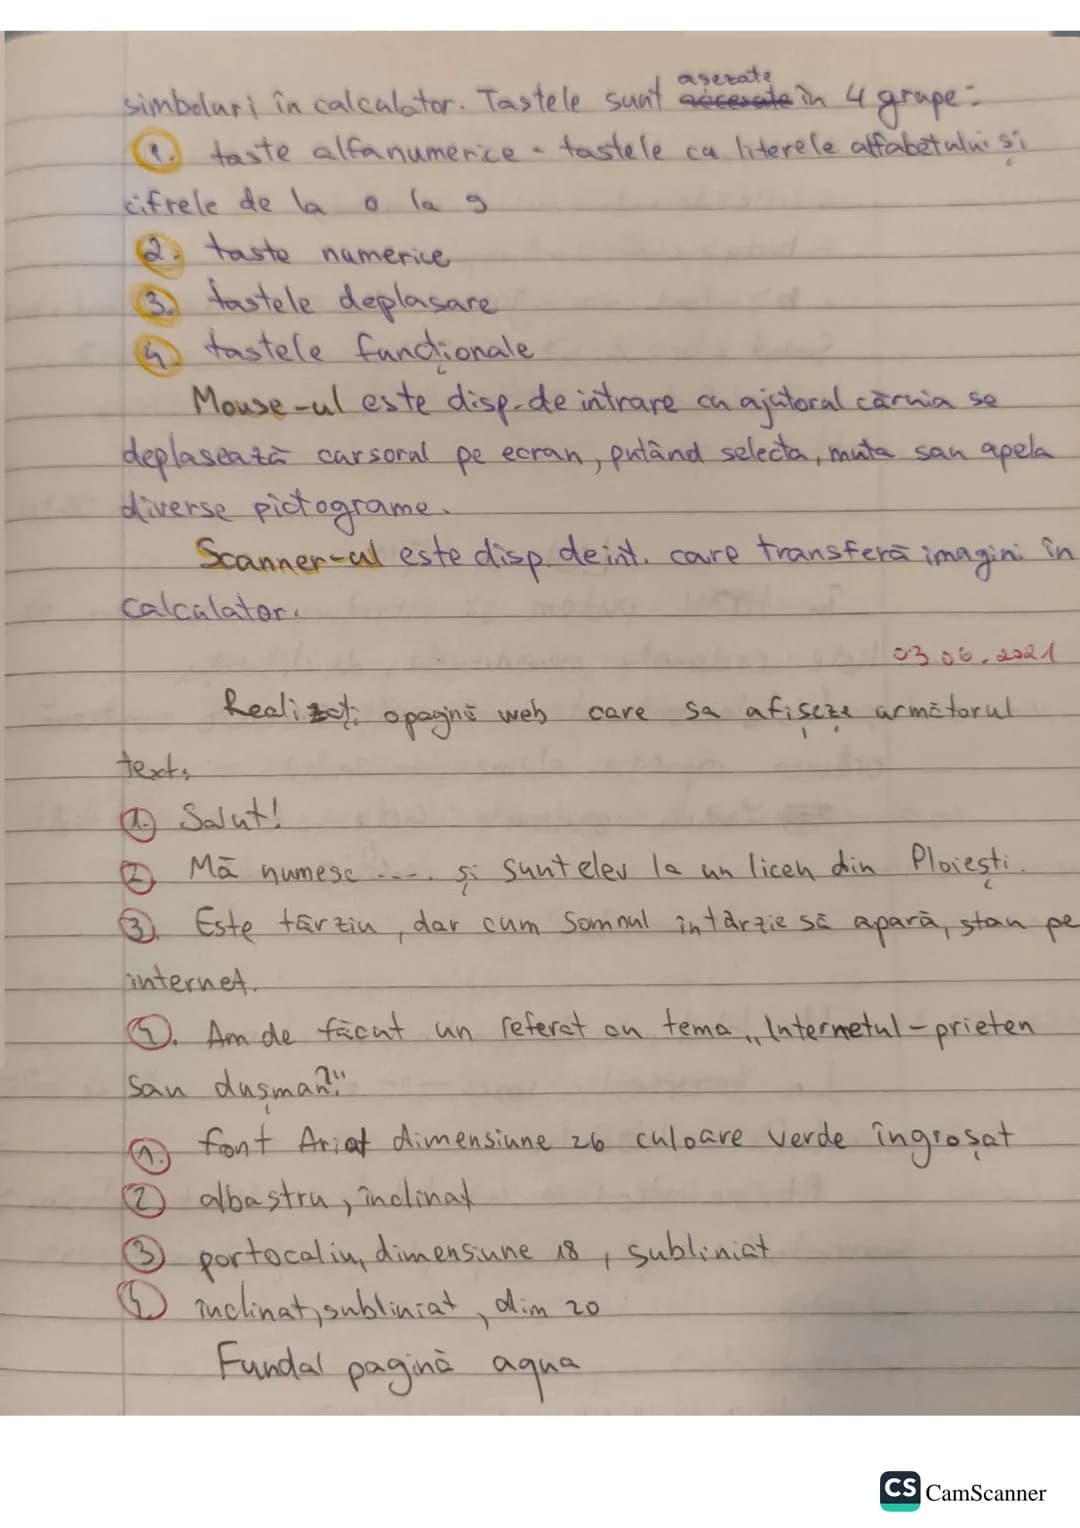 așezate
simboluri în calculator. Tastele sunt accesate în 4 grupe:
1. taste alfanumerice - tastele cu literele alfabetului și
cifrele de la 0 la 9
2. taste numerice
3. tastele deplasare
4. tastele funcționale
Mouse-ul este disp. de intrare cu ajutorul căruia se
deplasează cursorul pe ecran, putând selecta, muta sau apela
diverse pictograme.
Scanner-ul este disp. de int. care transferă imagini în
calculator.
03.06.2021
Realizați o pagină web care sa afișeze următorul
text:
1. Salut!
2. Mă numesc .... și sunt elev la un liceu din Ploiești.
3. Este târziu, dar cum somnul întârzie să apară, stau pe
internet.
4. Am de făcut un referat cu tema „Internetul - prieten
sau dușman?"
1. font Arial dimensiune 26 culoare verde îngroșat
2 albastru, înclinat
3 portocaliu, dimensiune 18, subliniat
4 înclinat, subliniat, dim 20
Fundal pagină aqua
CS CamScanner